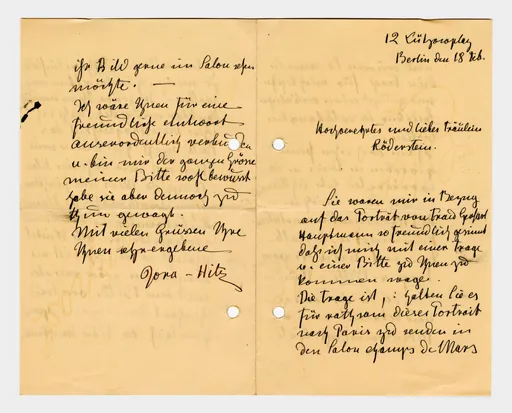 12 Lützowplatz
Berlin den 18 Feb.
Hochverehrtes und liebes Fräulein
Röderstein.
Sie waren mir in Bezug
auf das Porträt von Frau Gerhart
Hauptmann so freundlich gesinnt
daß ich mich mit einer Frage
u. einer Bitte zu Ihnen zu
kommen wage.
Die Frage ist, : halten Sie es
für rathsam dieses Portrait
nach Paris zu senden in
den Salon champs de Mars
ihr Bild gerne im Salon sehen
möchte. —
Ich wäre Ihnen für eine
freundliche Antwort
ausserordentlich verbunden
u. bin mir der ganzen Grösse
meiner Bitte wohl bewusst
habe sie aber dennoch zu
thun gewagt.
Mit vielen Grüssen Ihre
Ihnen sehr ergebene
Dora - Hitz